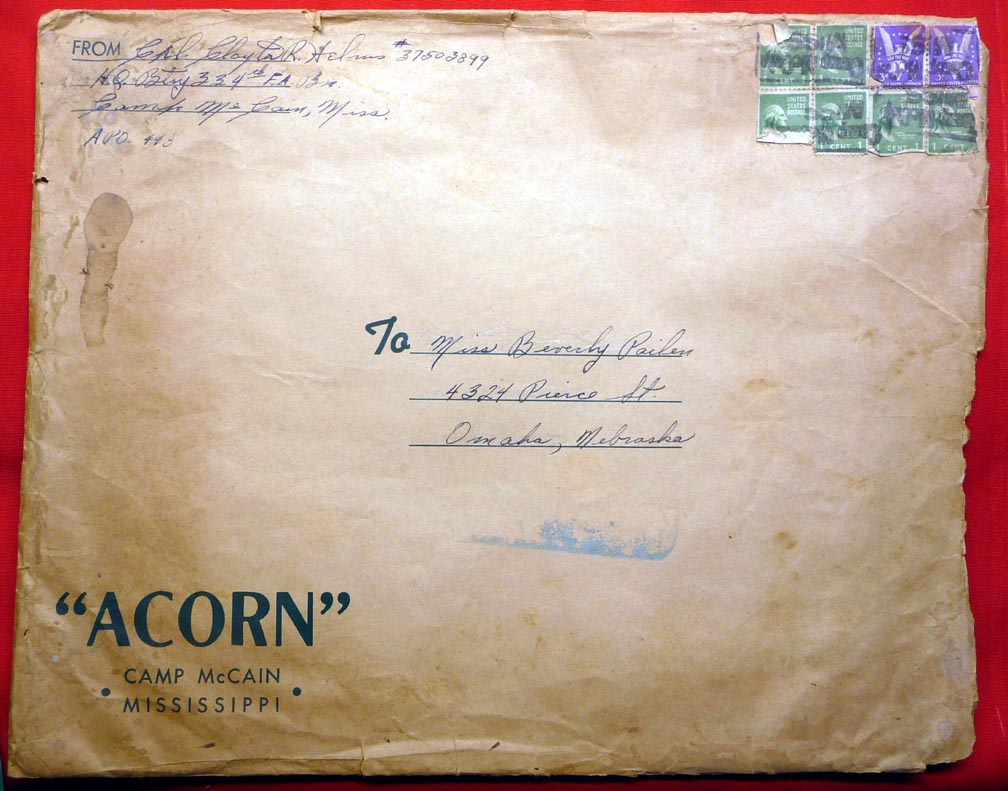 FROM Cpl. Clayton R. Helms #37503899
H.Q. Btry 334th F.A. Bn.
Camp McCain, Miss.
A.P.O. 443
UNITED STATES POSTAGE
1 CENT 1
CENT 1
1 CENT 1
To Miss Beverly Pailen
4324 Pierce St.
Omaha, Nebraska
“ACORN”
CAMP McCAIN
• MISSISSIPPI •